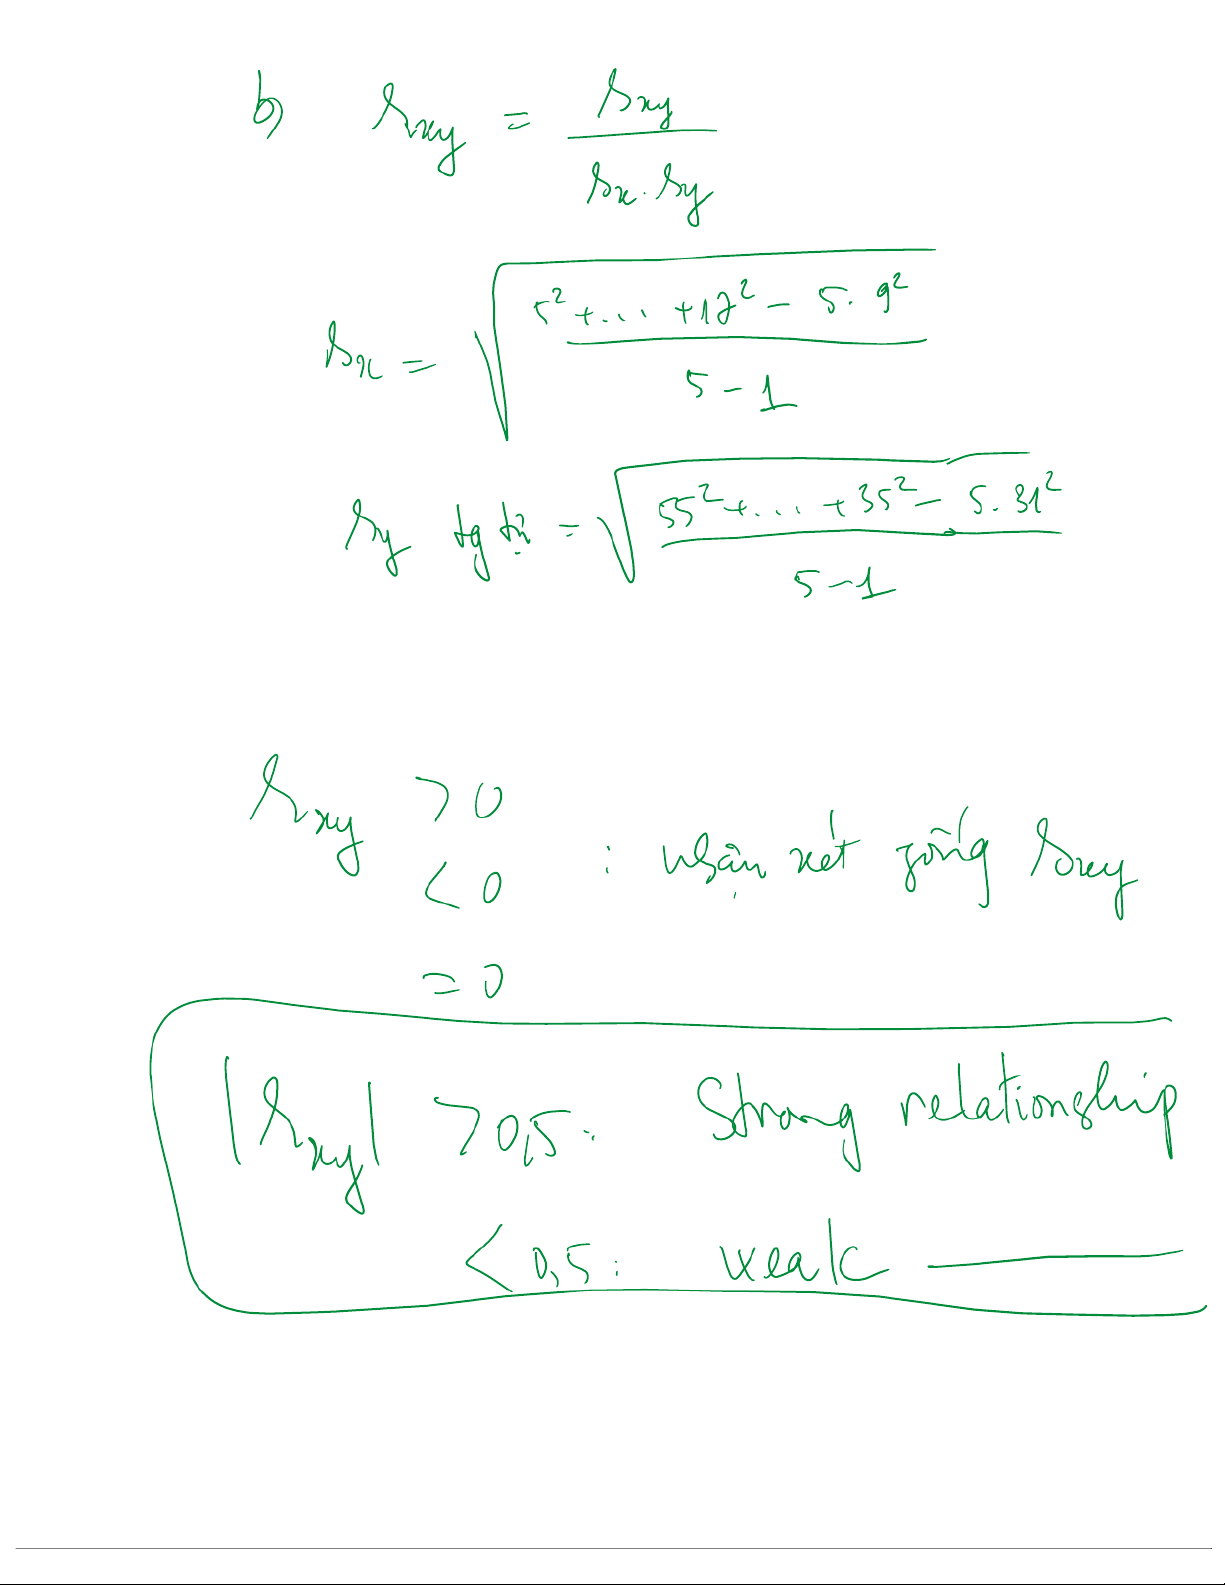 b) r_xy = s_xy / (s_x . s_y)
s_x = √((5² + ... + 12² - 5. 9²) / (5 - 1))
s_y tg tự = √((55² + ... + 35² - 5. 31²) / (5 - 1))
r_xy > 0
< 0 : nhận xét giống s_xy
= 0
|r_xy| > 0,5 : Strong relationship
< 0,5 : weak ———